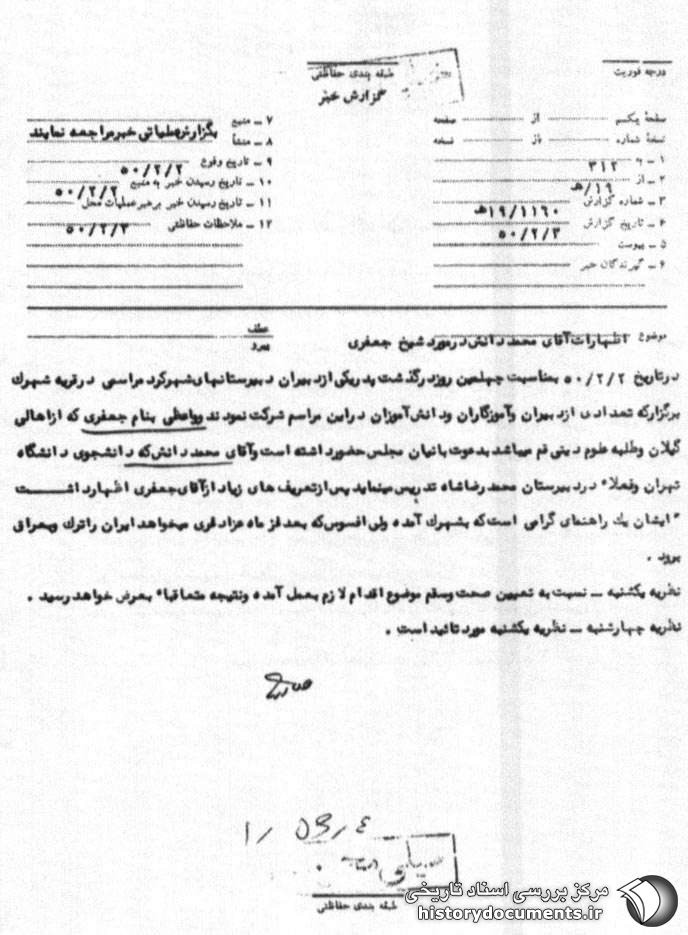 درجه فوریت
طبقه بندی حفاظتی
گزارش خبر
صفحهٔ یکم از صفحه
نسخهٔ شماره از نسخه
۱ ـ به ۳۱۲
۲ ـ از ۱۹/هـ
۳ ـ شماره گزارش ۱۹/۱۱۶۰هـ
۴ ـ تاریخ گزارش ۵۰/۲/۳
۵ ـ پیوست
۶ ـ گیرندگان خبر
۷ ـ منبع
۸ ـ منشأ بگزارش عملیاتی خبر مراجعه نمایند
۹ ـ تاریخ وقوع ۵۰/۲/۲
۱۰ ـ تاریخ رسیدن خبر به منبع ۵۰/۲/۲
۱۱ ـ تاریخ رسیدن خبر برهبر عملیات محل
۱۲ ـ ملاحظات حفاظتی ۵۰/۲/۳
موضوع اظهارات آقای محمد دانش در مورد شیخ جعفری
عطف
پیرو
در تاریخ ۵۰/۲/۲ بمناسبت چهلمین روز درگذشت پدر یکی از دبیران دبیرستانهای شهرکرد مراسمی در قریه شهرک
برگزار که تعدادی از دبیران و آموزگاران و دانش‌آموزان در این مراسم شرکت نمودند و واعظی بنام جعفری که از اهالی
گیلان و طلبه علوم دینی قم میباشد بدعوت بانیان مجلس حضور داشته است و آقای محمد دانش که دانشجوی دانشگاه
تهران و فعلا" در دبیرستان محمدرضاشاه تدریس مینماید پس از تعریف های زیاد از آقای جعفری اظهار داشت
"ایشان یک راهنمای گرامی است که بشهرک آمده ولی افسوس که بعد از ماه عزاداری میخواهد ایران را ترک و بعراق
برود .
نظریه یکشنبه ـ نسبت به تعیین صحت و سقم موضوع اقدام لازم بعمل آمده و نتیجه متعاقبا" بعرض خواهد رسید .
نظریه چهارشنبه ـ نظریه یکشنبه مورد تائید است .
طبقه بندی حفاظتی
مرکز بررسی اسناد تاریخی
historydocuments.ir